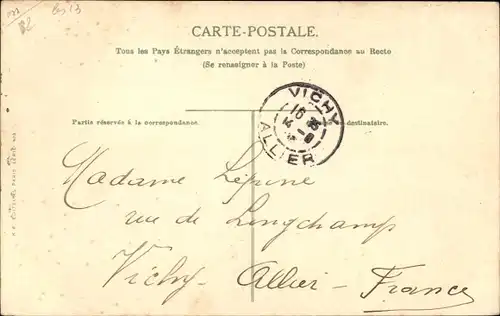 CARTE-POSTALE.
Tous les Pays Étrangers n'acceptent pas la Correspondance au Recto
(Se renseigner à la Poste)
VICHY
ALLIER
Partie réservée à la correspondance.
destinataire.
Madame Lépine
rue de Longchamps
Vichy - Allier - France